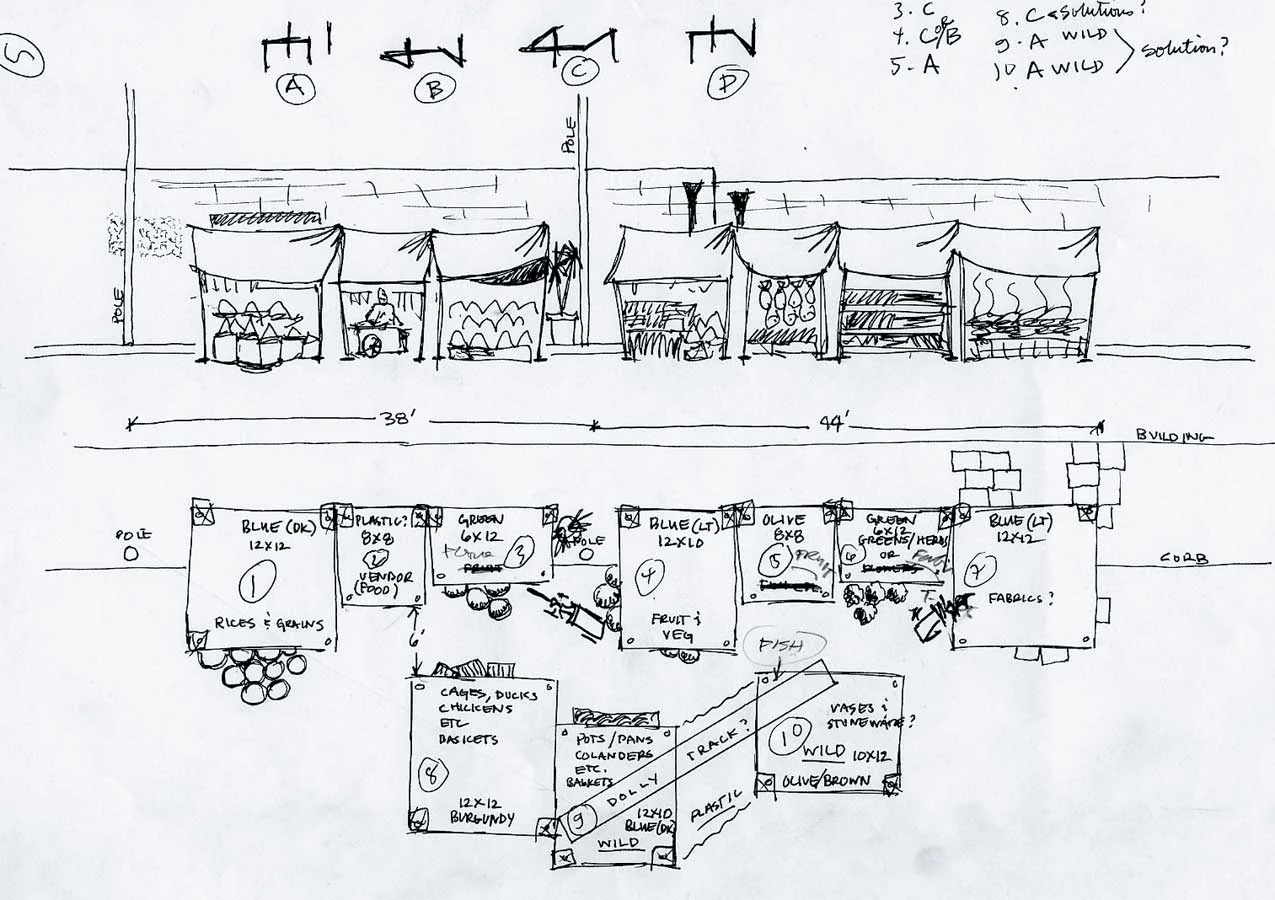 5
A
B
C
D
3. C
4. C or B
5- A
8. C & solutions?
9. A WILD
10 A WILD
Solution?
POLE
POLE
38'
44'
BUILDING
POLE
BLUE (DK)
12x12
1
RICES & GRAINS
PLASTIC?
8x8
2
VENDOR
(FOOD)
GREEN
6x12
3
FRUIT
POLE
BLUE (LT)
12x10
4
FRUIT &
VEG
OLIVE
8x8
5
FRUIT
GREEN
6x12
GREENS/HERBS
OR
6
FLOWERS
BLUE (LT)
12x12
7
FABRICS?
CURB
6'
CAGES, DUCKS
CHICKENS
ETC
BASKETS
8
12x12
BURGUNDY
POTS/PANS
COLANDERS
ETC.
BASKETS
9
12x10
BLUE (DK)
WILD
DOLLY TRACK?
PLASTIC
FISH
VASES &
STONEWARE?
10
WILD 10x12
OLIVE/BROWN